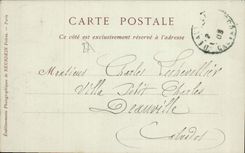 CARTE POSTALE
Ce côté est exclusivement réservé à l'adresse
Monsieur Charles
Villa Petit Charles
Deauville
Calvados
Établissements Photographiques de NEURDEIN Frères. — Paris